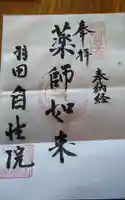 奉拝
奉納経
薬師如来
羽田自性院